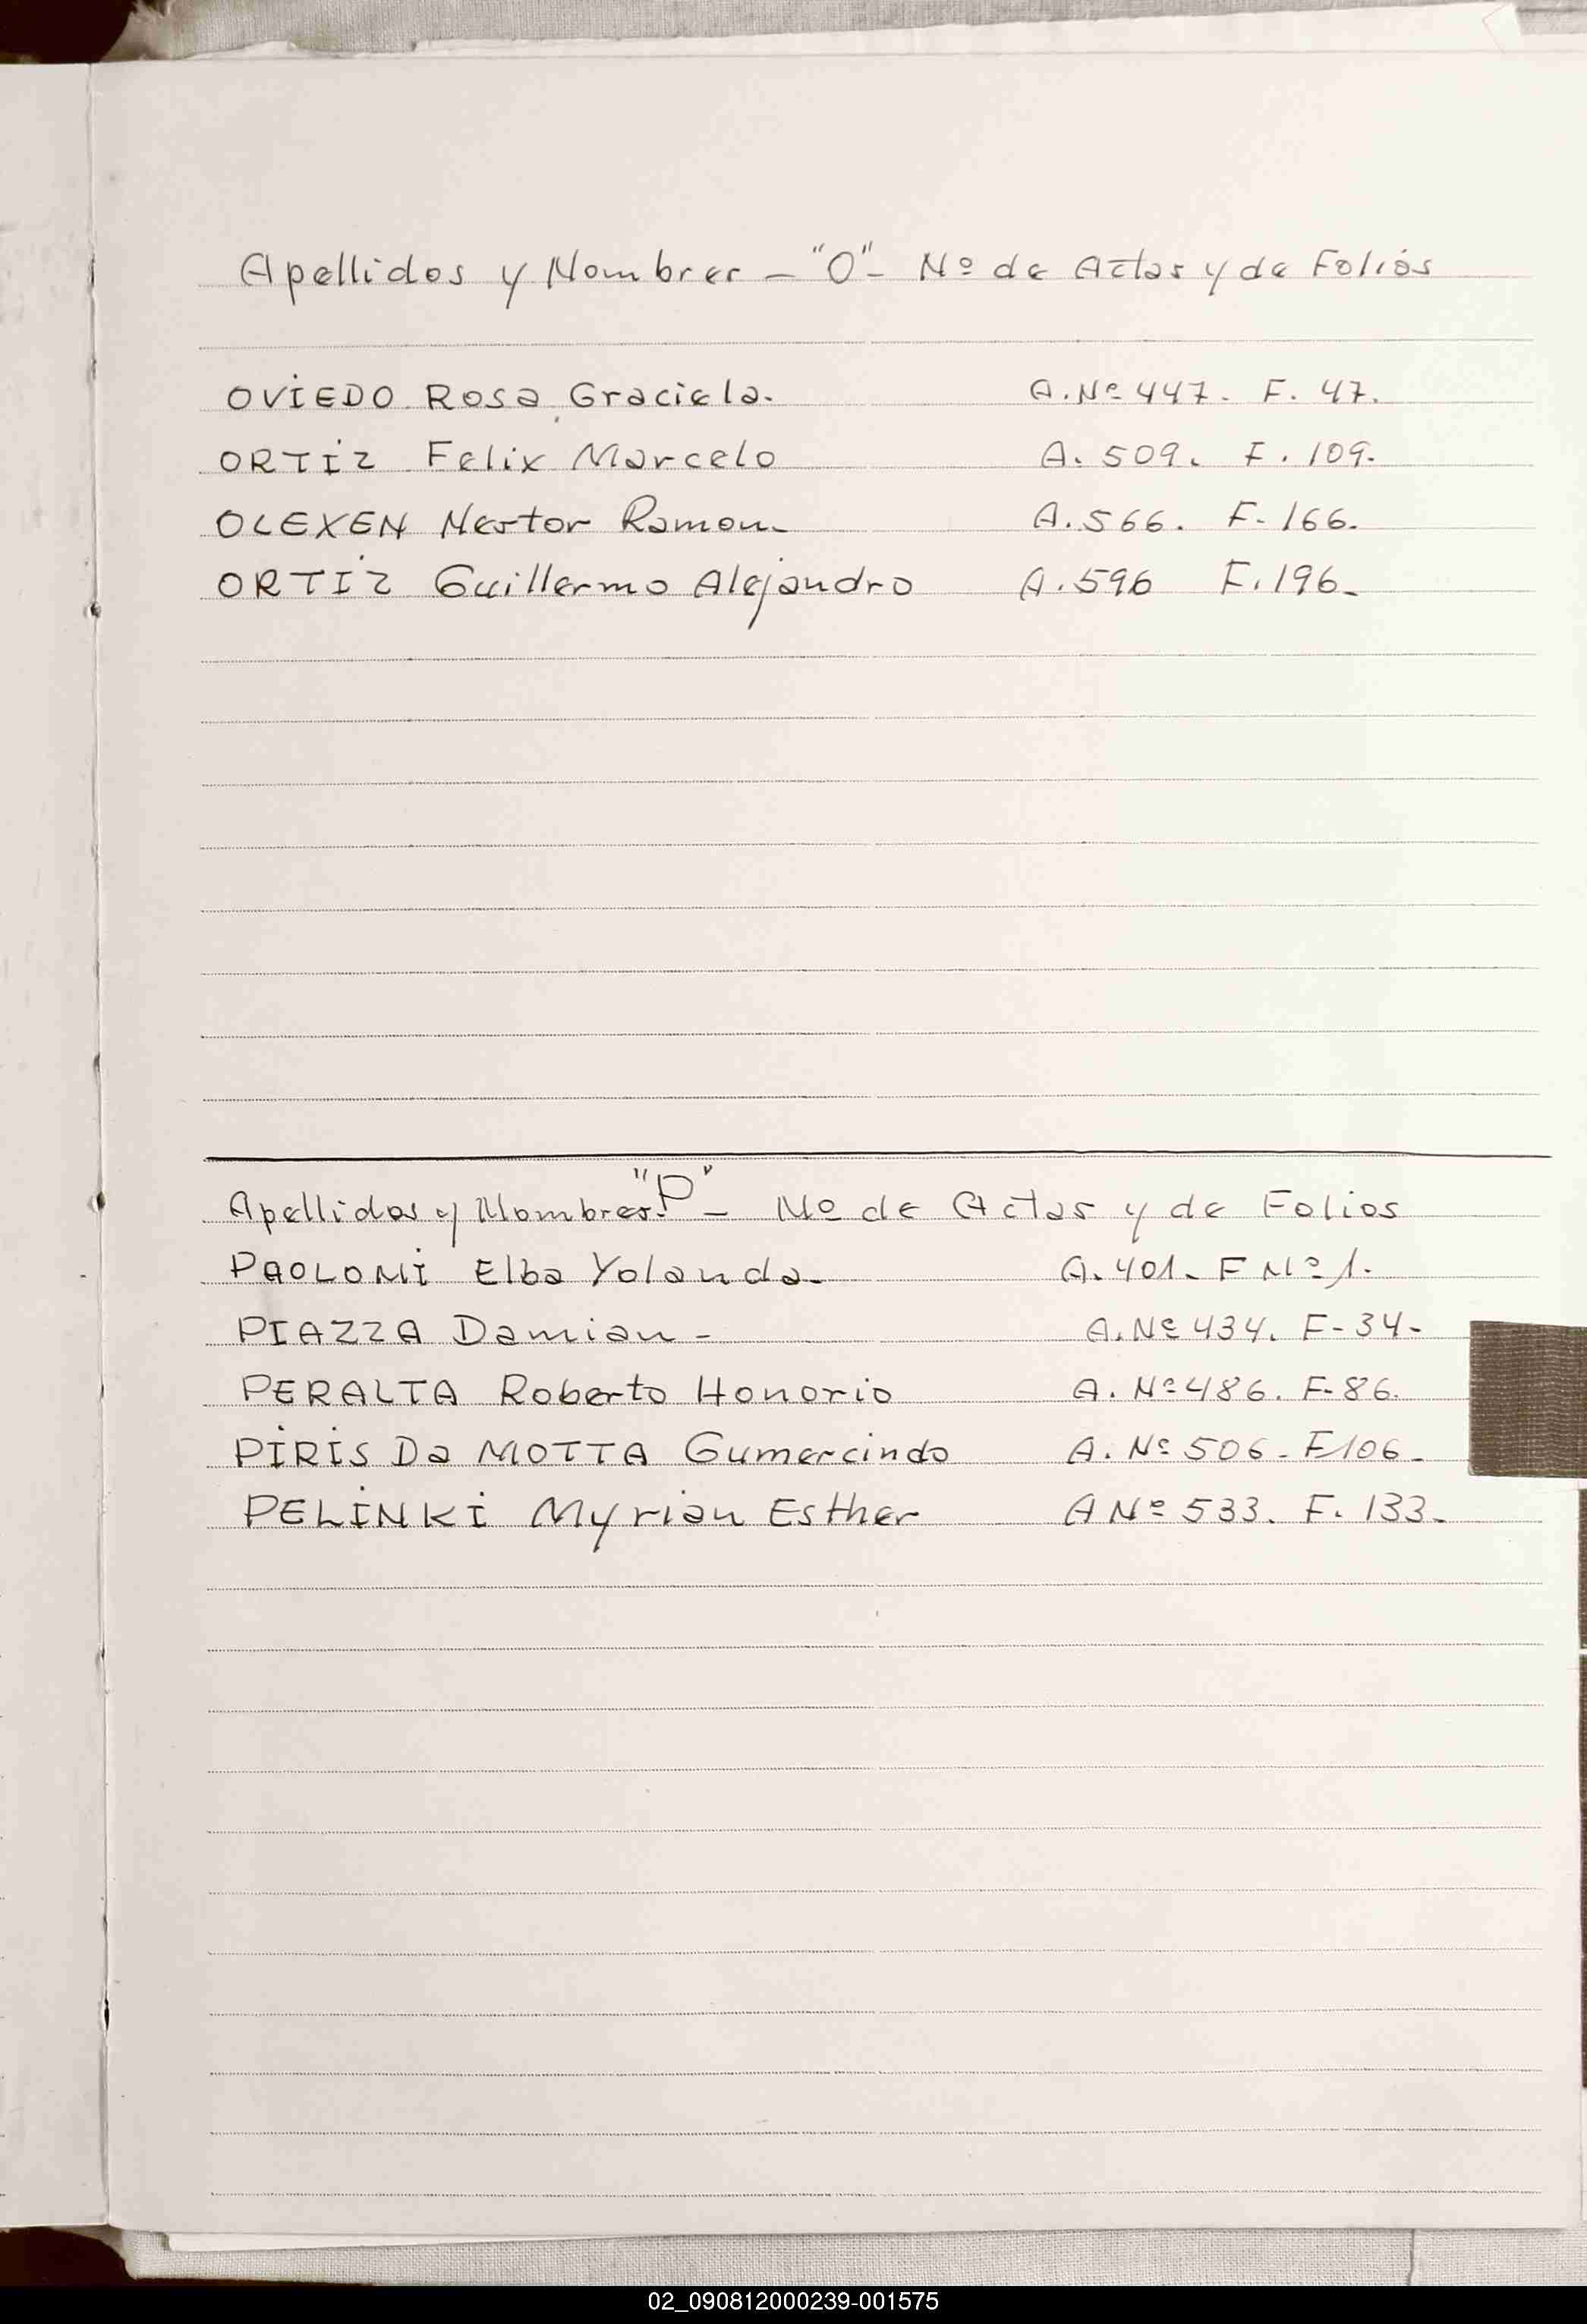 Apellidos y Nombres – "O" – Nº de Actas y de Folios
OVIEDO Rosa Graciela. A. Nº 447. F. 47.
ORTIZ Felix Marcelo A. 509. F. 109.
OLEXEN Nestor Ramon. A. 566. F. 166.
ORTIZ Guillermo Alejandro A. 596 F. 196.
Apellidos y Nombres. "P" – Nº de Actas y de Folios
PAOLONI Elba Yolanda. A. 401. F Nº 1.
PIAZZA Damian - A. Nº 434. F-34-
PERALTA Roberto Honorio A. Nº 486. F-86.
PIRIS Da MOTTA Gumercindo A. Nº 506 - F106.
PELINKI Myrian Esther A Nº 533. F. 133.
02_090812000239-001575